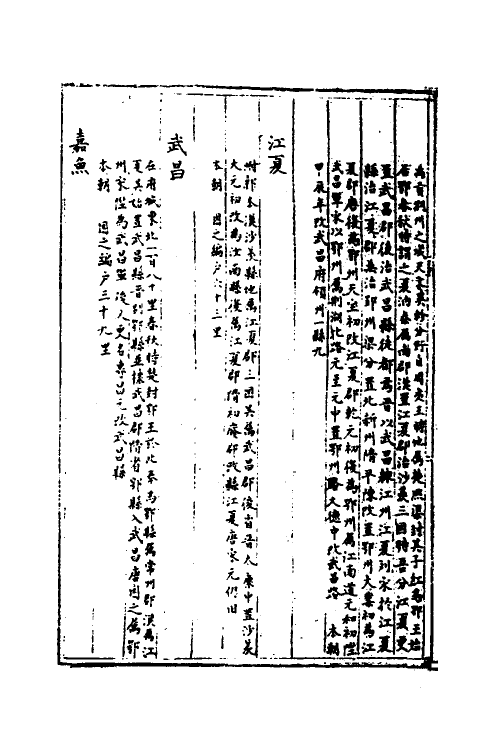 禹貢荊州之域天文翼軫分野自周夷王時地屬楚熊渠封其子紅為鄂王始
居鄂春秋時謂之夏汭秦屬南郡漢置江夏郡治沙羡三國時吾分江夏更
置武昌郡後治武昌縣徙都焉晉以武昌隸江州江夏別宋於江夏
縣治江夏郡兼治郢州梁分置北新州隋平陳改置鄂州大業初為江
夏郡唐復為鄂州天寶初改江夏郡乾元初復為鄂州屬江南道元和初陞
武昌軍宋以鄂州屬荊湖北路元至元中置鄂州路大德中改武昌路 本朝
甲辰年改武昌府領州一縣九
江夏
附郭本漢沙羡縣地屬江夏郡三國吳屬武昌郡後省晉太康中置沙羡
大元初改為汝南縣後屬江夏郡隋初廢郡改縣江夏唐宋元仍旧
本朝 因之編户六十三里
武昌
在府城東北一百八十里春秋時楚封鄂王於此秦為鄂縣屬常州郡漢屬江
夏吳始置武昌縣晉別鄂縣並隸武昌郡隋省鄂縣入武昌唐因之屬鄂
州宋陞為武昌軍後又更名壽昌元改武昌縣
本朝 因之編户三十九里
嘉魚